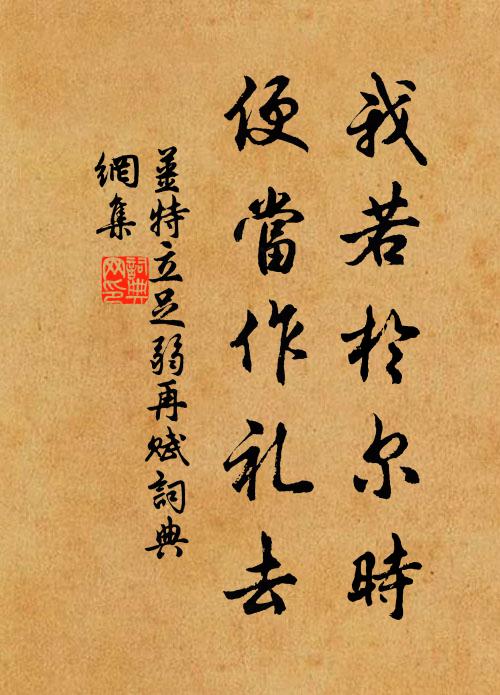 我若於尔時
便當作礼去
姜特立足弱再赋詞典
網集
詞典
网印